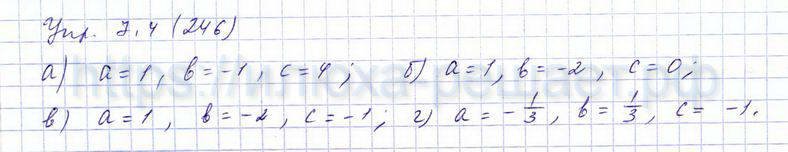 Упр. 7.4 (246)
а) a = 1, b = -1, c = 4; б) a = 1, b = -2, c = 0;
в) a = 1, b = -2, c = -1; г) a = -1/3, b = 1/3, c = -1.
https://илюха-решает.рф